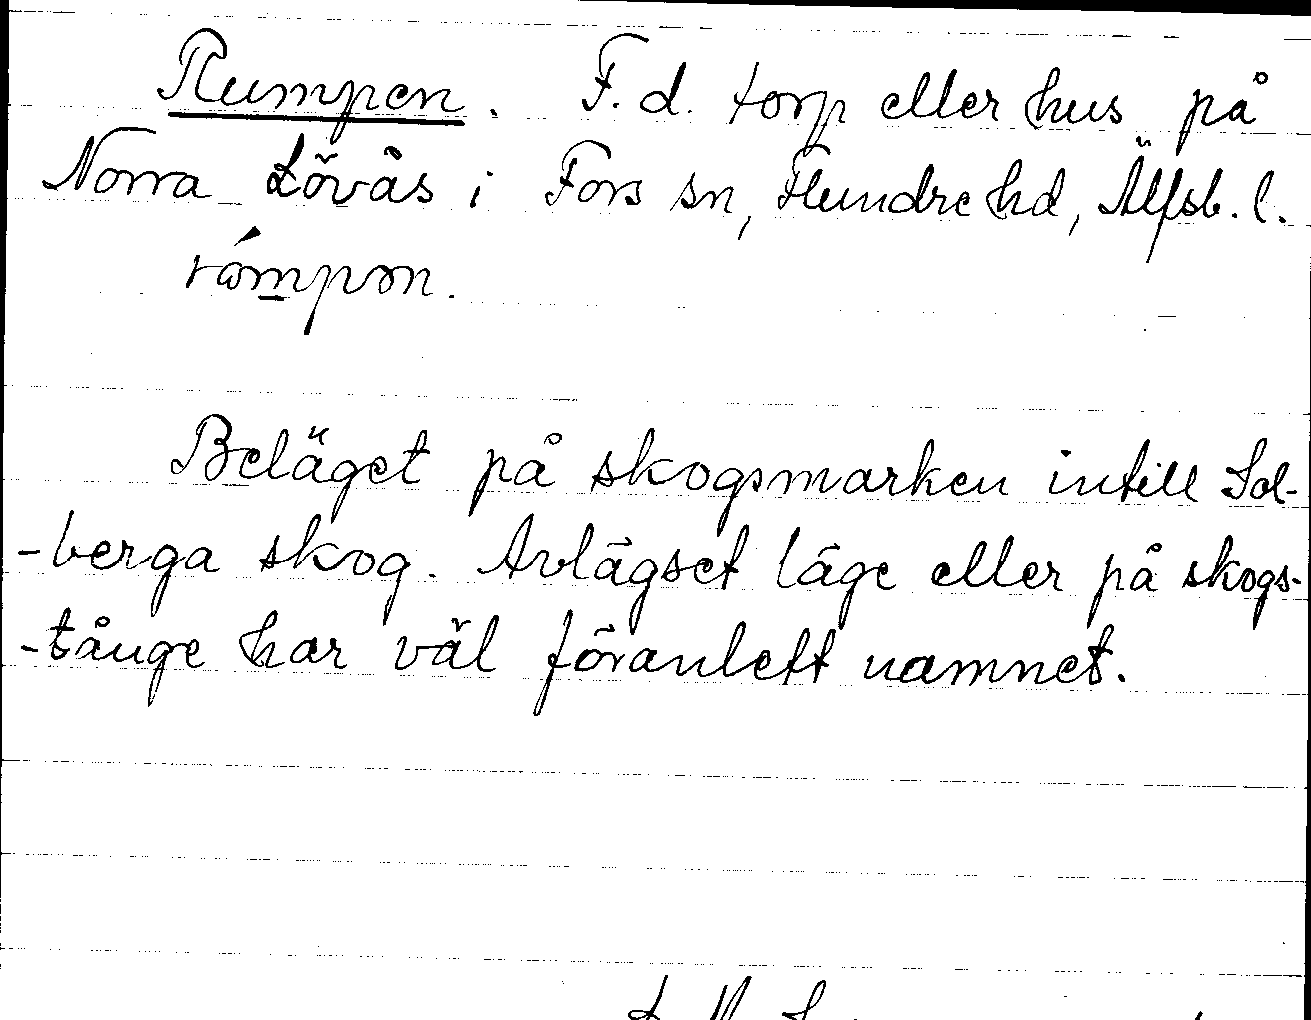 Rumpen. F. d. torp eller hus på
Norra Lövås i Fors sn, Flundre hd, Älfsb. l.
rómpən.
Beläget på skogsmarken intill Sol-
-berga skog. Avlägset läge eller på skogs-
-tånge har väl föranlett namnet.